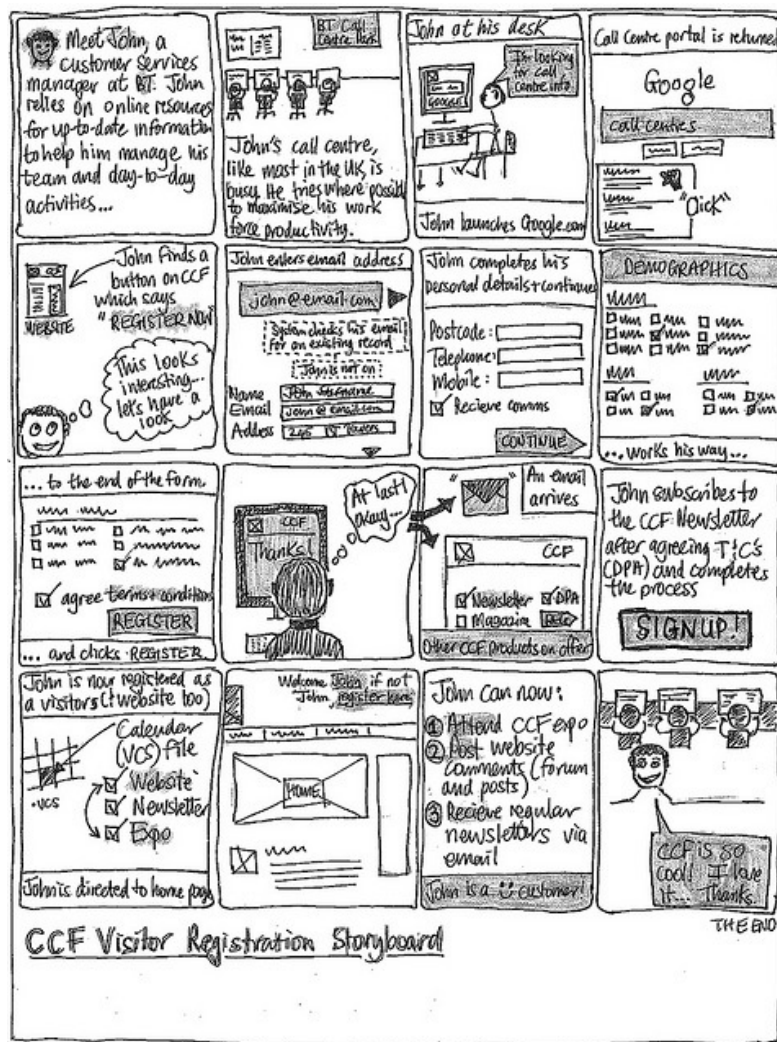 Meet John, a
customer services
manager at BT. John
relies on online resources
for up-to-date information
to help him manage his
team and day-to-day
activities...
BT Call
Centre Park
John's call centre,
like most in the UK, is
busy. He tries where possible
to maximise his work
force productivity.
John at his desk
I'm looking
for call
centre info
GOOGLE
John launches Google.com
Call Centre portal is returned
Google
call centres
"Click"
John finds a
button on CCF
which says
"REGISTER NOW"
WEBSITE
This looks
interesting...
let's have a
look
John enters email address
john@email.com
System checks his email
for an existing record
John is not on
Name John Surname
Email john@email.com
Address 245 Towers
John completes his
personal details + continues
Postcode:
Telephone:
Mobile:
Recieve comms
CONTINUE
DEMOGRAPHICS
... works his way...
... to the end of the form.
agree terms + conditions
REGISTER
... and clicks REGISTER
CCF
Thanks!
At last!
okay...
An email
arrives
CCF
Newsletter DPA
Magazine
Other CCF products on offer
John subscribes to
the CCF Newsletter
after agreeing T&C's
(DPA) and completes
the process
SIGNUP!
John is now registered as
a visitors (+ website too)
Calendar
(VCS) file
.vcs
Website
Newsletter
Expo
John is directed to home page
Welcome John if not
John, register here
HOME
John can now:
1 Attend CCF expo
2 Post website
comments (forum
and posts)
3 Recieve regular
newsletters via
email
John is a customer!
CCF is so
cool! I love
it... Thanks.
THE END
CCF Visitor Registration Storyboard